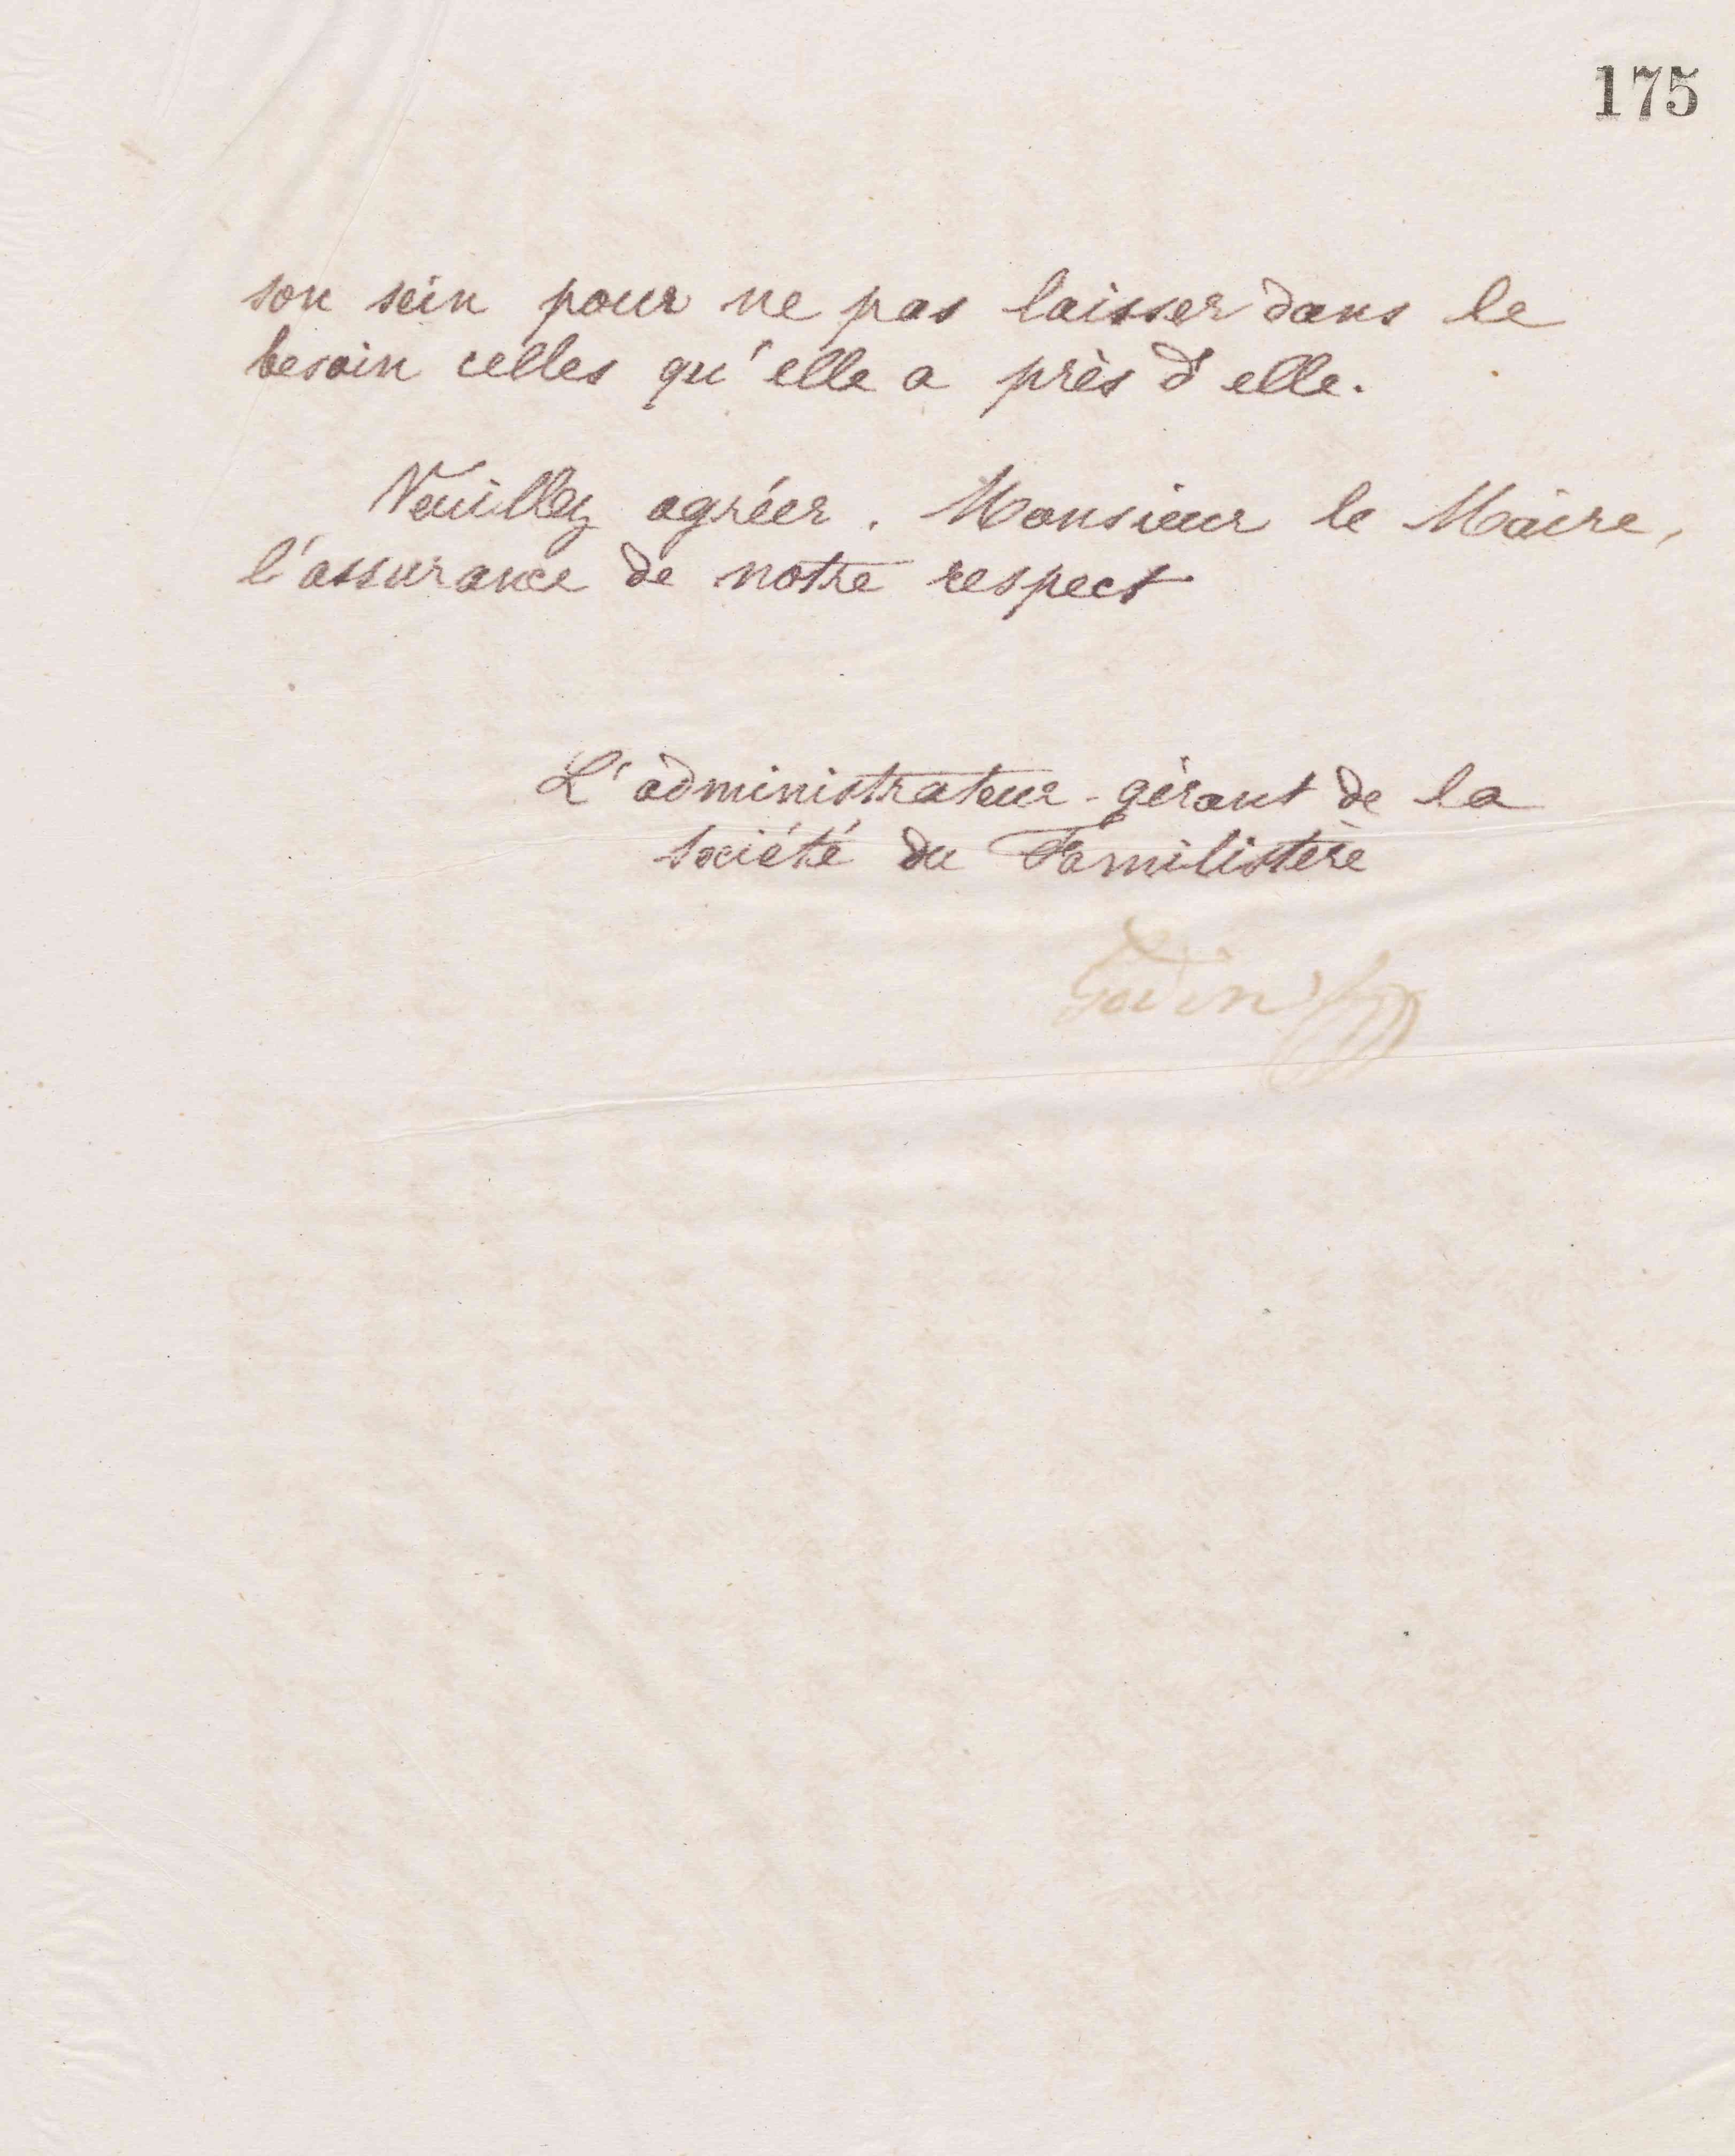 175
son sein pour ne pas laisser dans le
besoin celles qu'elle a près d'elle.
Veuillez agréer. Monsieur le Maire,
l'assurance de notre respect
L'administrateur-gérant de la
Société du Familistère
Godin